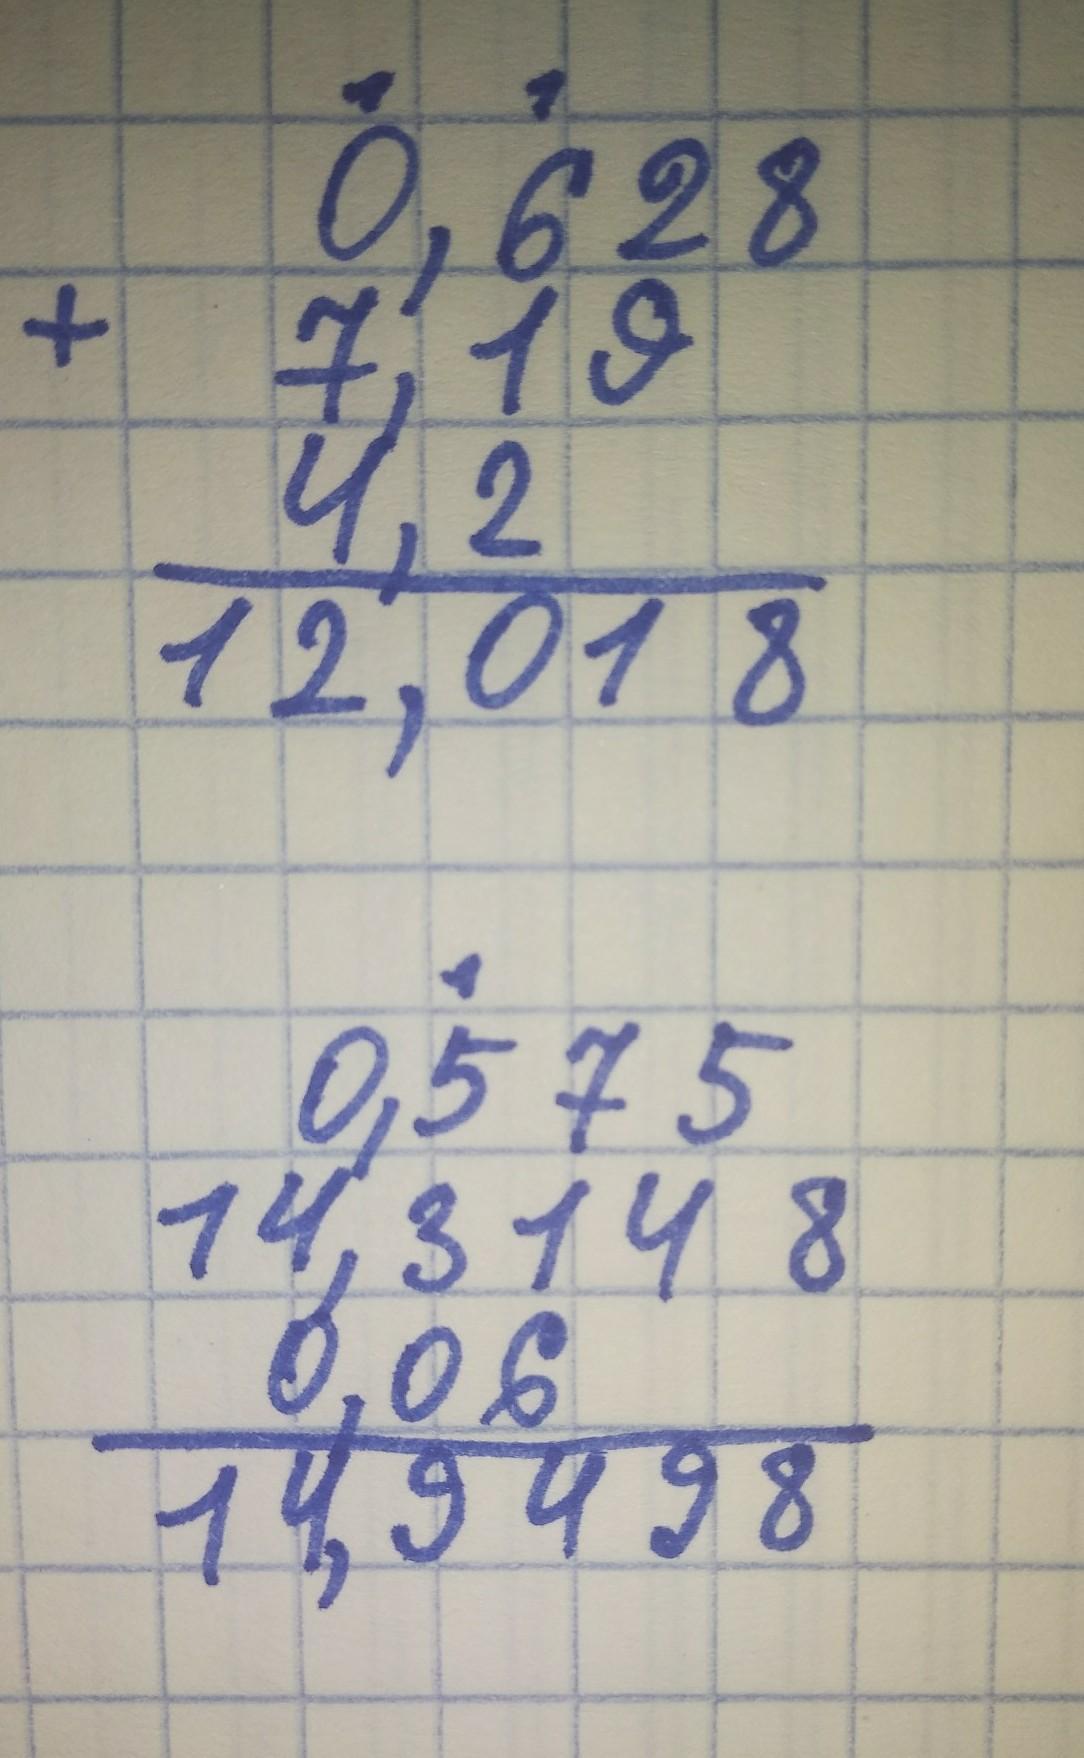 1 1
0,628
+ 7,19
4,2
12,018
1
0,575
14,3148
0,06
14,9498